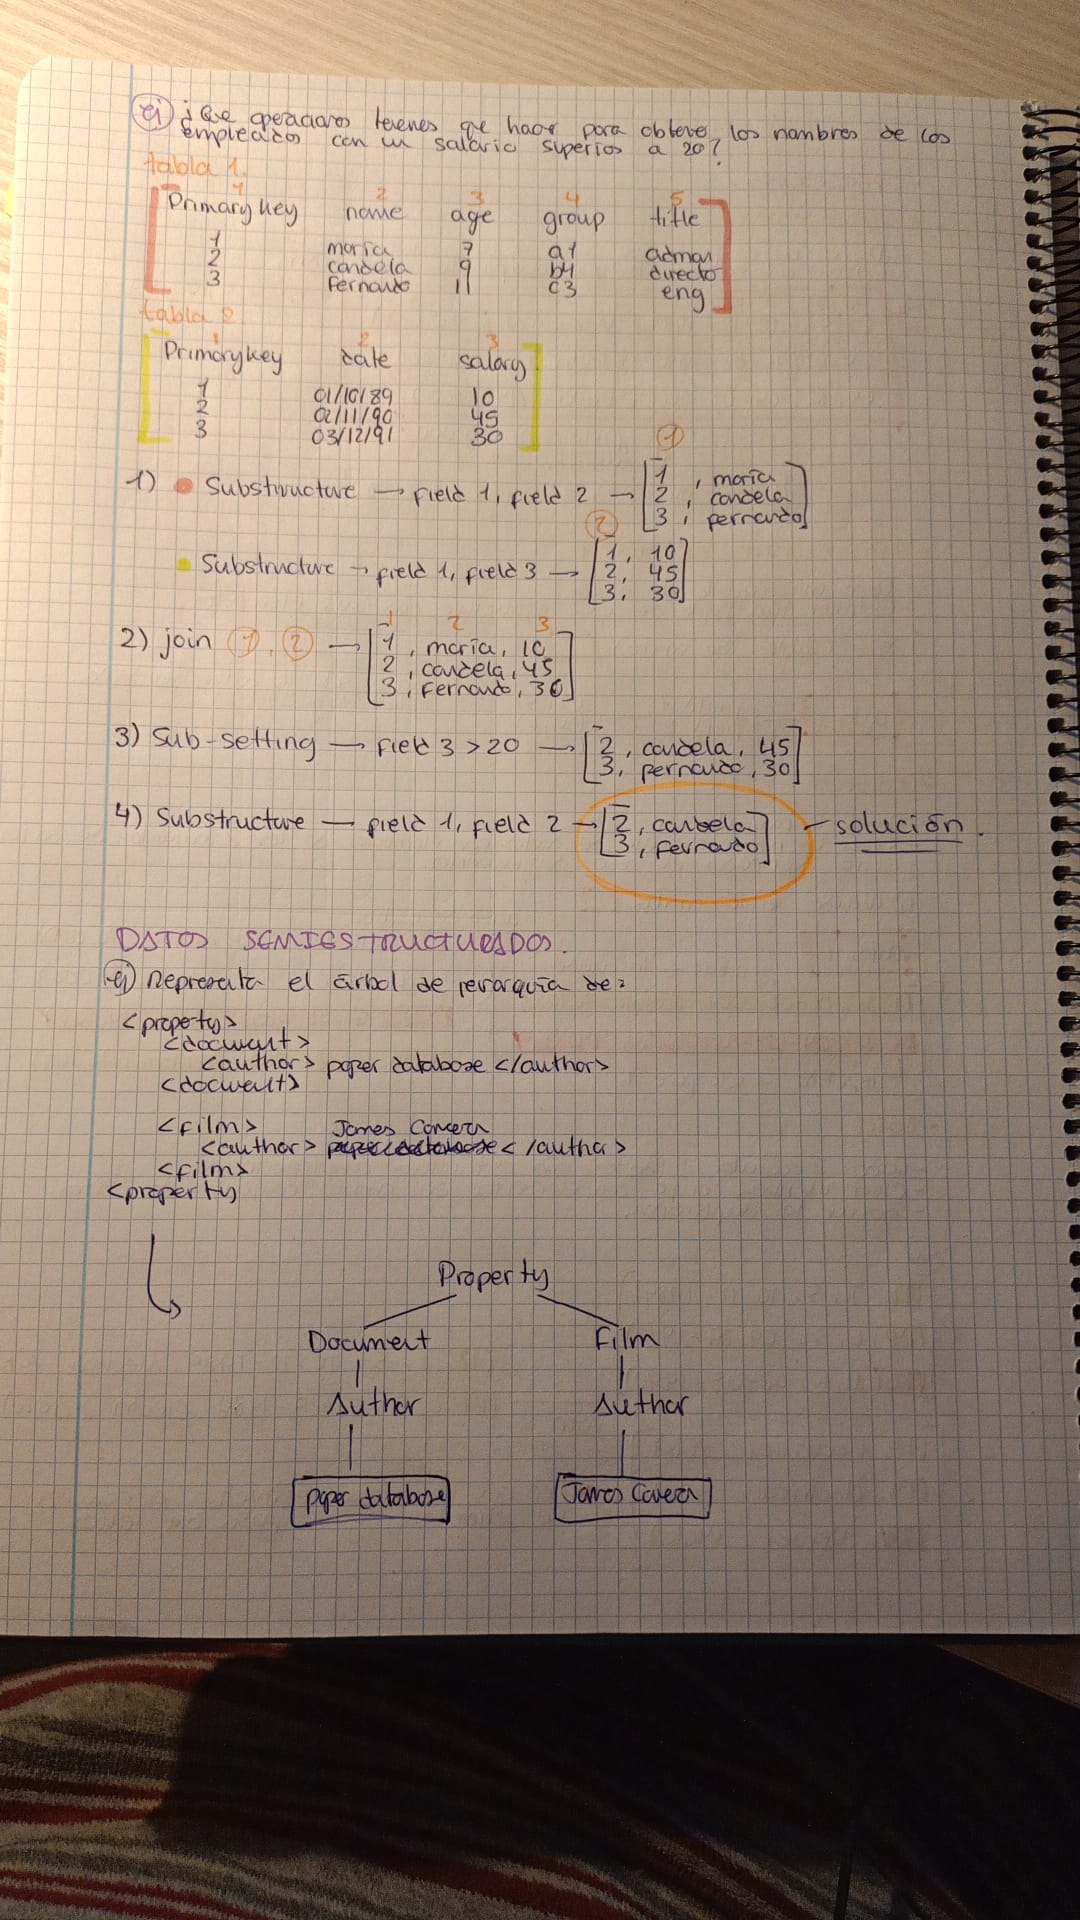 ej ¿Que operaciones tenemos que hacer para obtener los nombres de los
empleados con un salario superior a 20?
tabla 1.
1 2 3 4 5
Primary key name age group title
1 maria 7 a1 adman
2 candela 9 b4 directo
3 fernando 11 c3 eng
tabla 2
1 2 3
Primary key date salary
1 01/10/89 10
2 02/11/90 45
3 03/12/91 30
1) Substructure → field 1, field 2 → ①
[1, maria
2, candela
3, fernando]
Substructure → field 1, field 3 → ②
[1, 10
2, 45
3, 30]
2) join ①, ② →
1 2 3
[1, maria, 10
2, candela, 45
3, fernando, 30]
3) Sub-setting → field 3 > 20 →
[2, candela, 45
3, fernando, 30]
4) Substructure → field 1, field 2 →
[2, candela
3, fernando] - solución.
DATOS SEMIESTRUCTURADOS.
ej) Representa el árbol de jerarquía de:
<property>
<document>
<author> paper database </author>
<document>
<film>
James Camera
<author> paper database </author>
<film>
<property
Property
Document Film
Author Author
paper database James Camera